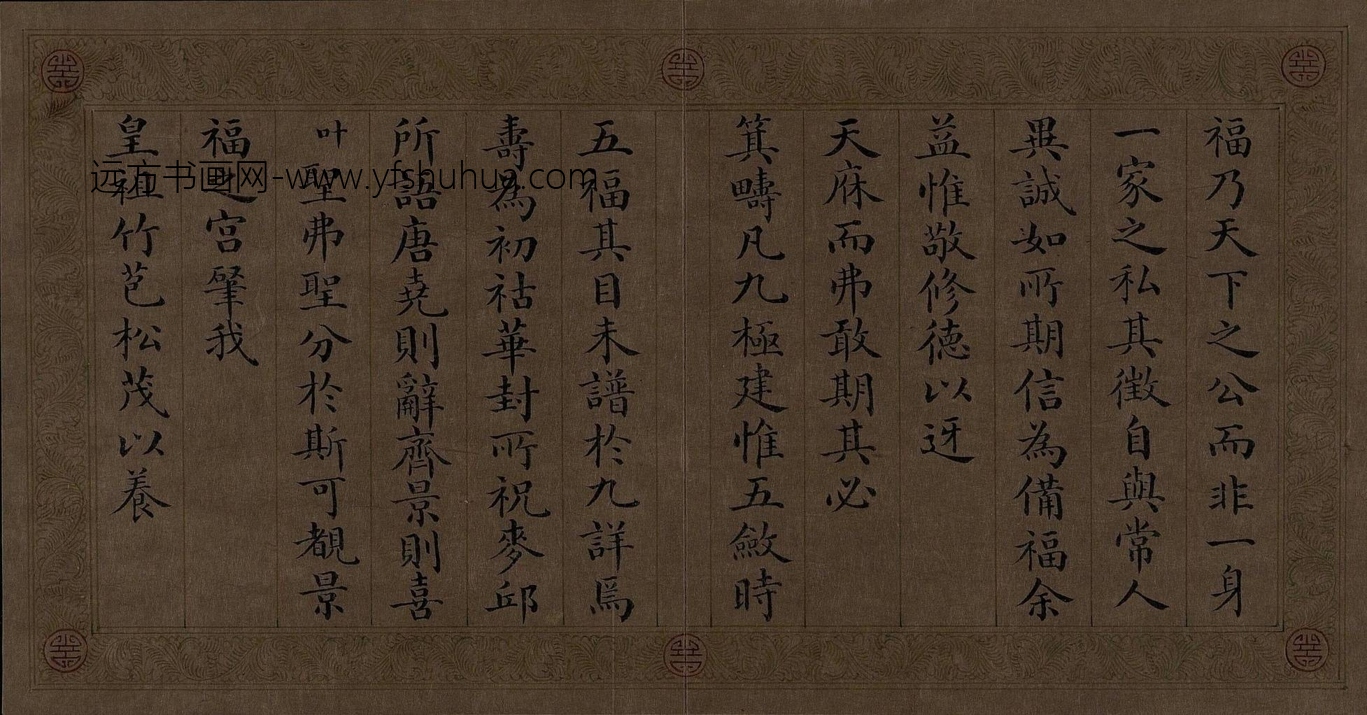 福乃天下之公而非一身
一家之私其徵自與常人
異誠如所期信為備福余
益惟敬修德以迓
天庥而弗敢期其必
箕疇凡九極建惟五斂時
五福其目未譜於九詳焉
壽為初祜華封所祝麥邱
所語唐堯則辭齊景則喜
叶聖弗聖分於斯可覩景
福之宮肇我
皇祖竹苞松茂以養
远方书画网-www.yfshuhua.com